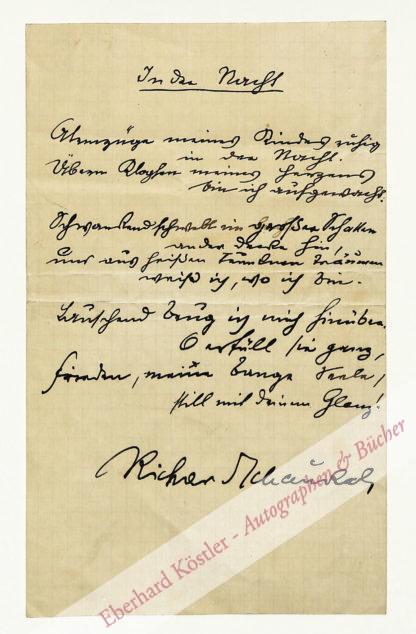 In der Nacht
Atemzüge meines Kindes ruhig
in der Nacht.
Überm Klopfen meines Herzens
bin ich aufgewacht.
Schwankend schwebt ein großer Schatten
an der Decke hin,
und aus heißen dunklen Träumen
weiß ich, wo ich bin.
Lauschend beug ich mich hinüber.
O erfüll sie ganz,
Frieden, meine bange Seele,
still mit deinem Glanz!
Richard Schaukal
Eberhard Köstler - Autographen & Bücher